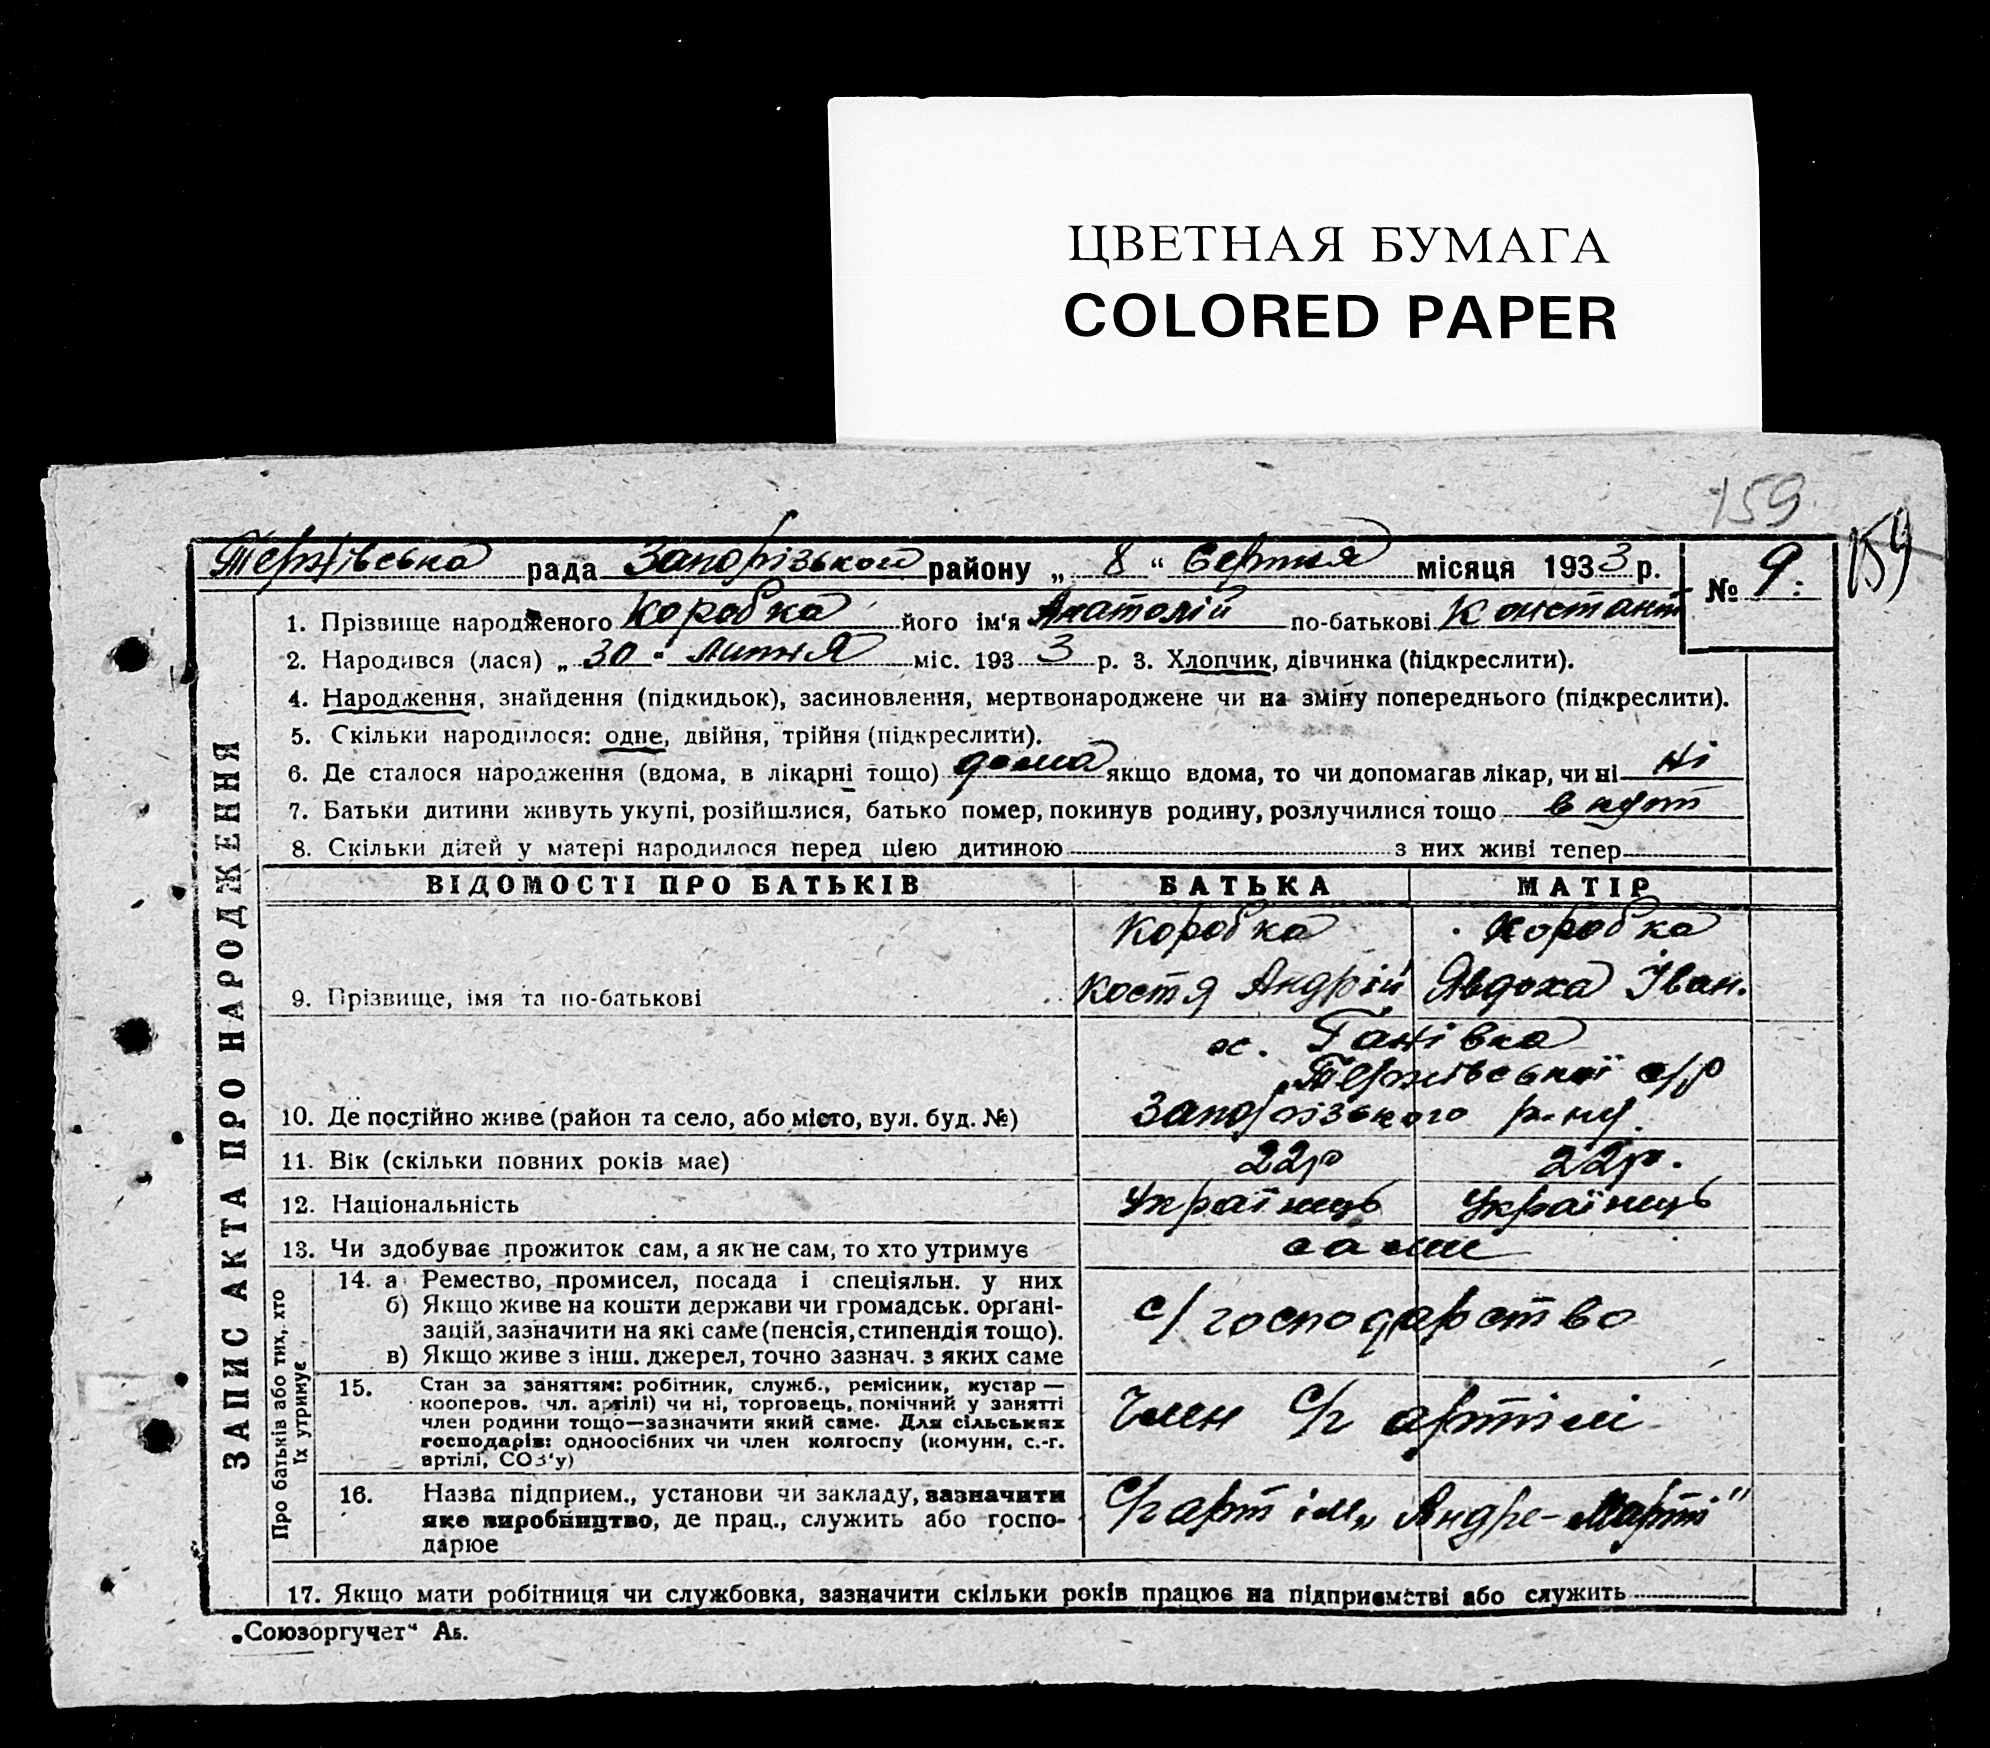 ЦВЕТНАЯ БУМАГА
COLORED PAPER
159
159
Тернівська рада Запорізькой району „ 8 “ Серпня місяця 1933 р. № 9.
1. Прізвище народженого Коробка його ім'я Анатолій по-батькові Констант
2. Народився (лася) „ 30 “ липня міс. 193 3 р. 3. Хлопчик, дівчинка (підкреслити).
4. Народження, знайдення (підкидьок), засиновлення, мертвонароджене чи на зміну попереднього (підкреслити).
5. Скільки народилося: одне, двійня, трійня (підкреслити).
6. Де сталося народження (вдома, в лікарні тощо) дома якщо вдома, то чи допомагав лікар, чи ні ні
7. Батьки дитини живуть укупі, розійшлися, батько помер, покинув родину, розлучилися тощо в купі
8. Скільки дітей у матері народилося перед цією дитиною з них живі тепер
ЗАПИС АКТА ПРО НАРОДЖЕННЯ
ВІДОМОСТІ ПРО БАТЬКІВ БАТЬКА МАТІР
Коробка Коробка
9. Прізвище, імя та по-батькові Костя Андрій Явдоха Іван.
с. Ганівка
Тернівської с/р
10. Де постійно живе (район та село, або місто, вул. буд. №) Запорізького р-ну.
11. Вік (скільки повних років має) 22р 22р.
12. Національність Українець Українець
13. Чи здобуває прожиток сам, а як не сам, то хто утримує сами
Про батьків або тих, хто їх утримує
14. а Ремество, промисел, посада і спеціяльн. у них
б) Якщо живе на кошти держави чи громадськ. органі-
зацій, зазначити на які саме (пенсія, стипендія тощо). с/господарство
в) Якщо живе з інш. джерел, точно зазнач. з яких саме
15. Стан за заняттям: робітник, служб., ремісник, кустар —
кооперов. чл. артілі) чи ні, торговець, помічний у занятті
член родини тощо—зазначити який саме. Для сільських Член с/г артілі
господарів: одноосібних чи член колгоспу (комуни, с.-г.
артілі, СОЗ'у)
16. Назва підприєм., установи чи закладу, зазначити
яке виробництво, де прац., служить або госпо- с/г арт ім „Андре-Марті"
дарює
17. Якщо мати робітниця чи службовка, зазначити скільки років працює на підприємстві або служить
„Союзоргучет“ Аб.